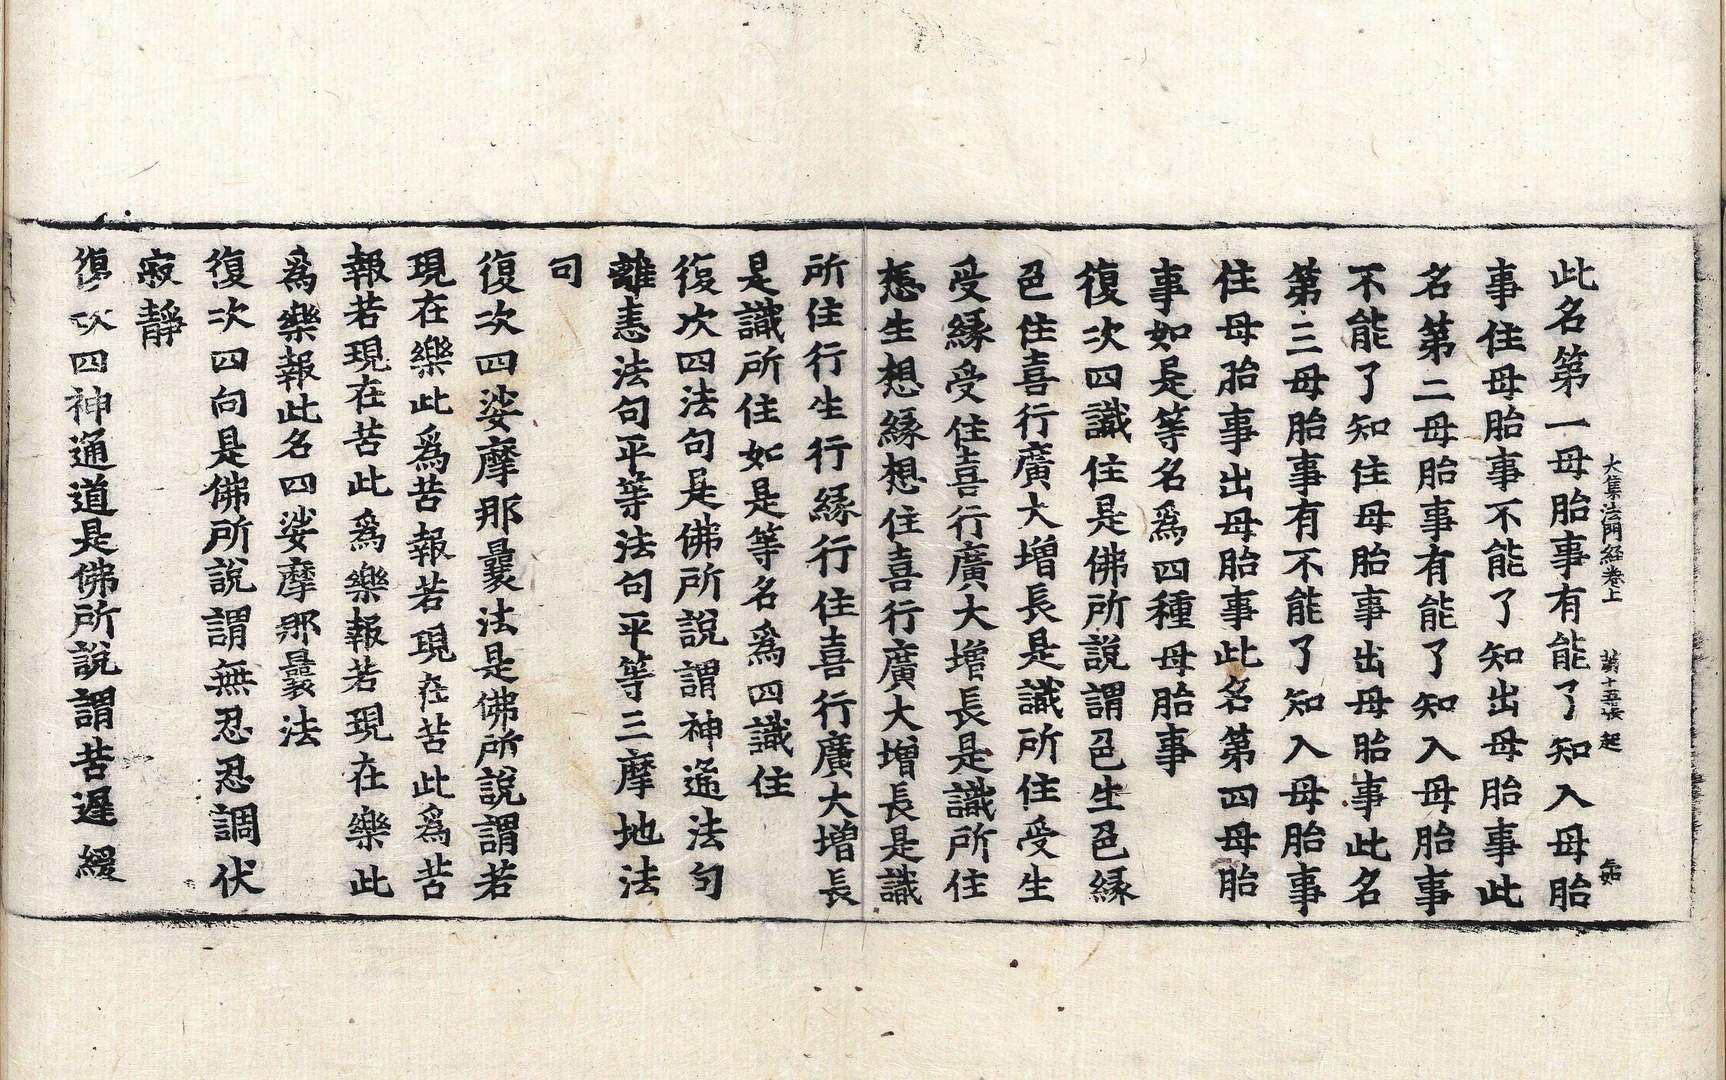 大集法門経卷上 第十五張 起
此名第一母胎事有能了知入母胎
事住母胎事不能了知出母胎事此
名第二母胎事有能了知入母胎事
不能了知住母胎事出母胎事此名
第三母胎事有不能了知入母胎事
住母胎事出母胎事此名第四母胎
事如是等名為四種母胎事
復次四識住是佛所說謂色生色緣
色住喜行廣大增長是識所住受生
受緣受住喜行廣大增長是識所住
想生想緣想住喜行廣大增長是識
所住行生行緣行住喜行廣大增長
是識所住如是等名為四識住
復次四法句是佛所說謂神通法句
離恚法句平等法句平等三摩地法
句
復次四娑摩那曩法是佛所說謂若
現在樂此為苦報若現在苦此為苦
報若現在苦此為樂報若現在樂此
為樂報此名四娑摩那曩法
復次四向是佛所說謂無忍忍調伏
寂靜
復次四神通道是佛所說謂苦遲緩